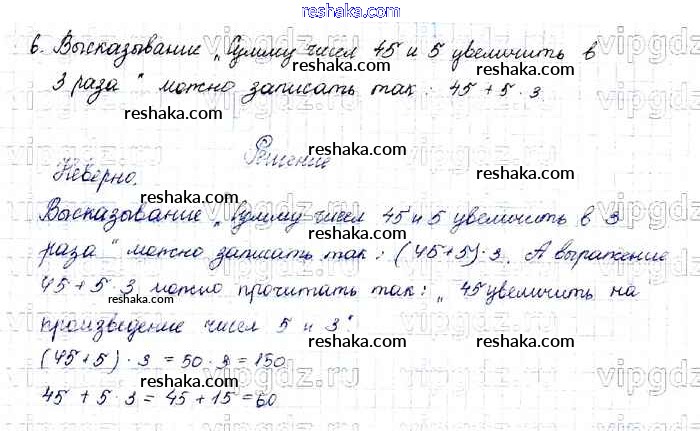 reshaka.com
6. Высказывание „Сумму чисел 45 и 5 увеличить в
3 раза“ можно записать так: 45 + 5 · 3
reshaka.com reshaka.com reshaka.com
Решение
reshaka.com
Неверно.
reshaka.com reshaka.com
Высказывание „Сумму чисел 45 и 5 увеличить в 3
раза“ можно записать так: (45+5)·3. А выражение
reshaka.com reshaka.com
45 + 5 · 3 можно прочитать так: „45 увеличить на
reshaka.com
произведение чисел 5 и 3“.
reshaka.com reshaka.com
(45+5) · 3 = 50 · 3 = 150
reshaka.com reshaka.com
45 + 5 · 3 = 45 + 15 = 60
vipgdz.ru